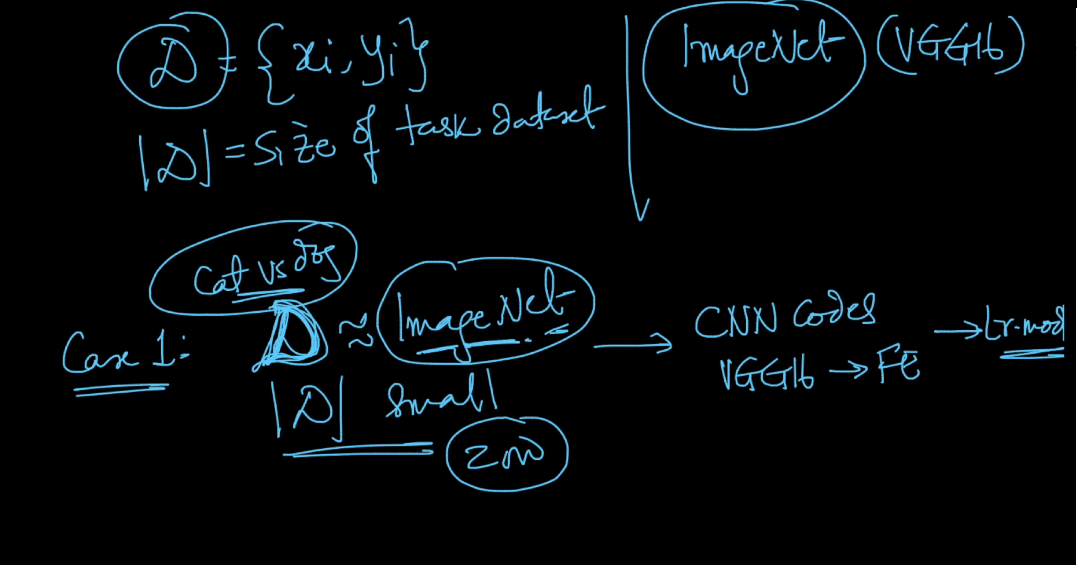 D = {xi, yi}
|D| = Size of task dataset
ImageNet (VGG16)
Cat vs dog
Case 1: D ≈ ImageNet → CNN Codes
VGG16 → FE
→ Lr. mod
|D| small